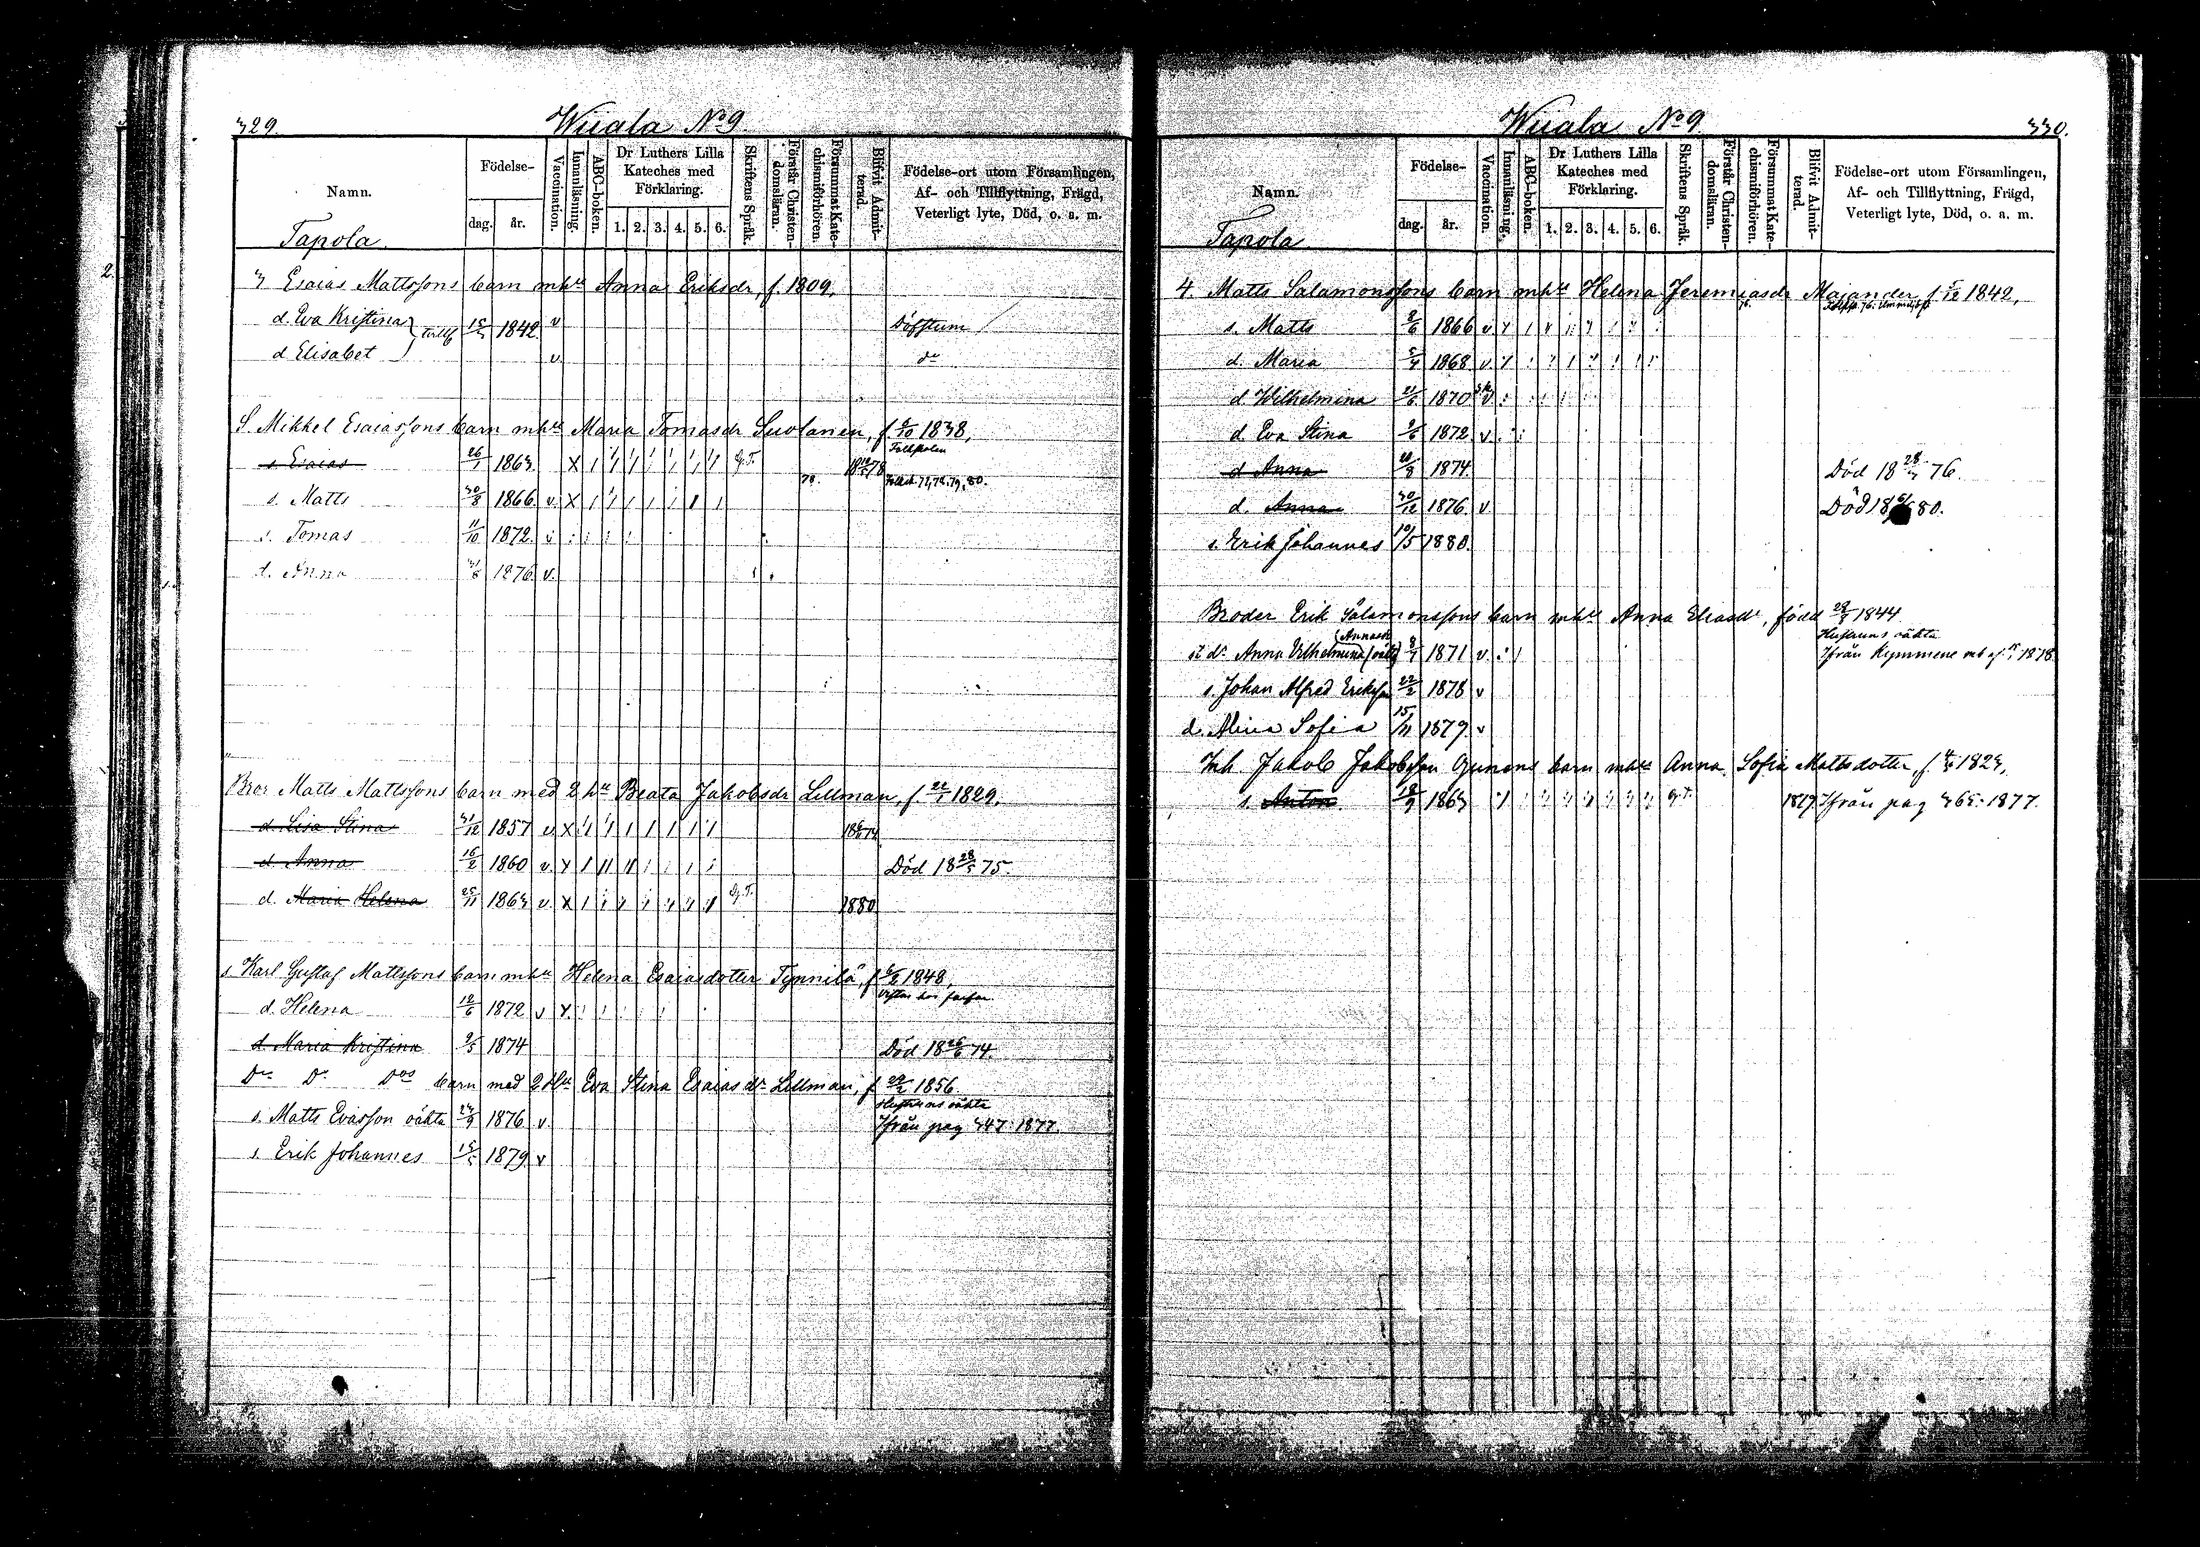 329. Wuala No 9.
Namn.
Födelse-
dag. år.
Vaccination.
Innanläsning.
ABC-boken.
Dr Luthers Lilla Kateches med Förklaring.
1. 2. 3. 4. 5. 6.
Skriftens Språk.
Förstår Christendomsläran.
Försummat Katechismiförhören.
Blifvit Admitterad.
Födelse-ort utom Församlingen,
Af- och Tillflyttning, Frägd,
Veterligt lyte, Död, o. a. m.
Tapola.
3 Esaias Mattssons barn mhu Anna Eriksdr, f. 1809.
d. Eva Kristina 1842. v Döfstum
d Elisabet v. do
S. Mikkel Esaiassons barn mhu Maria Tomasdr Suolanen, f. 1838,
s. Esaias 26/1 1863. X G.T. 78
s. Matts 30/8 1866. v. X
s. Tomas 11/10 1872. v.
d. Anna 1876. v.
Bror Matts Mattssons barn med 2 hu Beata Jakobsdr Lillman, f. 22/1 1829.
d. Lisa Stina 31/12 1857 v. X
d Anna 16/2 1860 v. Död 18 28/5 75.
d. Maria Helena 25/11 1863 v. X G.T. 1880
s. Karl Gustaf Mattssons barn mhu Helena Esaiasdotter Tynnilä, f 6/2 1848,
d. Helena 12/6 1872 v
d. Maria Kristina 9/5 1874 Död 18 26/6 74
Do Do Dos barn med 2 hu Eva Stina Esaiasdr Lillman, f 1856.
Hustruns oäkta
s. Matts Evasson oäkta 1876 v. Ifrån pag 347. 1877.
s. Erik Johannes 1879 v
Wuala No 9. 330.
Namn.
Födelse-
dag. år.
Vaccination.
Innanläsning.
ABC-boken.
Dr Luthers Lilla Kateches med Förklaring.
1. 2. 3. 4. 5. 6.
Skriftens Språk.
Förstår Christendomsläran.
Försummat Katechismiförhören.
Blifvit Admitterad.
Födelse-ort utom Församlingen,
Af- och Tillflyttning, Frägd,
Veterligt lyte, Död, o. a. m.
Tapola
4. Matts Salamonssons barn mhu Helena Jeremiasdr Majander, f. 1842,
s. Matts 1866 v
d. Maria 1868 v.
d. Wilhelmina 21/6 1870 v
d. Eva Stina 9/6 1872. v
d Anna 1874. Död 18 76.
d. Anna 30/12 1876. v Död 18 80.
s. Erik Johannes 10/5 1880.
Broder Erik Salamonssons barn mhu Anna Eliasdr, född 1844
Hustruns oäkta
dr Anna Vilhelmina 1871 v. Ifrån Kymmene 1878
s. Johan Alfred Eriksson 22/2 1878 v
d. Alina Sofia 15/11 1879 v
Inh. Jakob Jakobsson Gunens barn mhu Anna Sofia Mattsdotter, f. 1823,
s. Anton 18/9 1863 G.T. 1879 Ifrån pag 365. 1877.